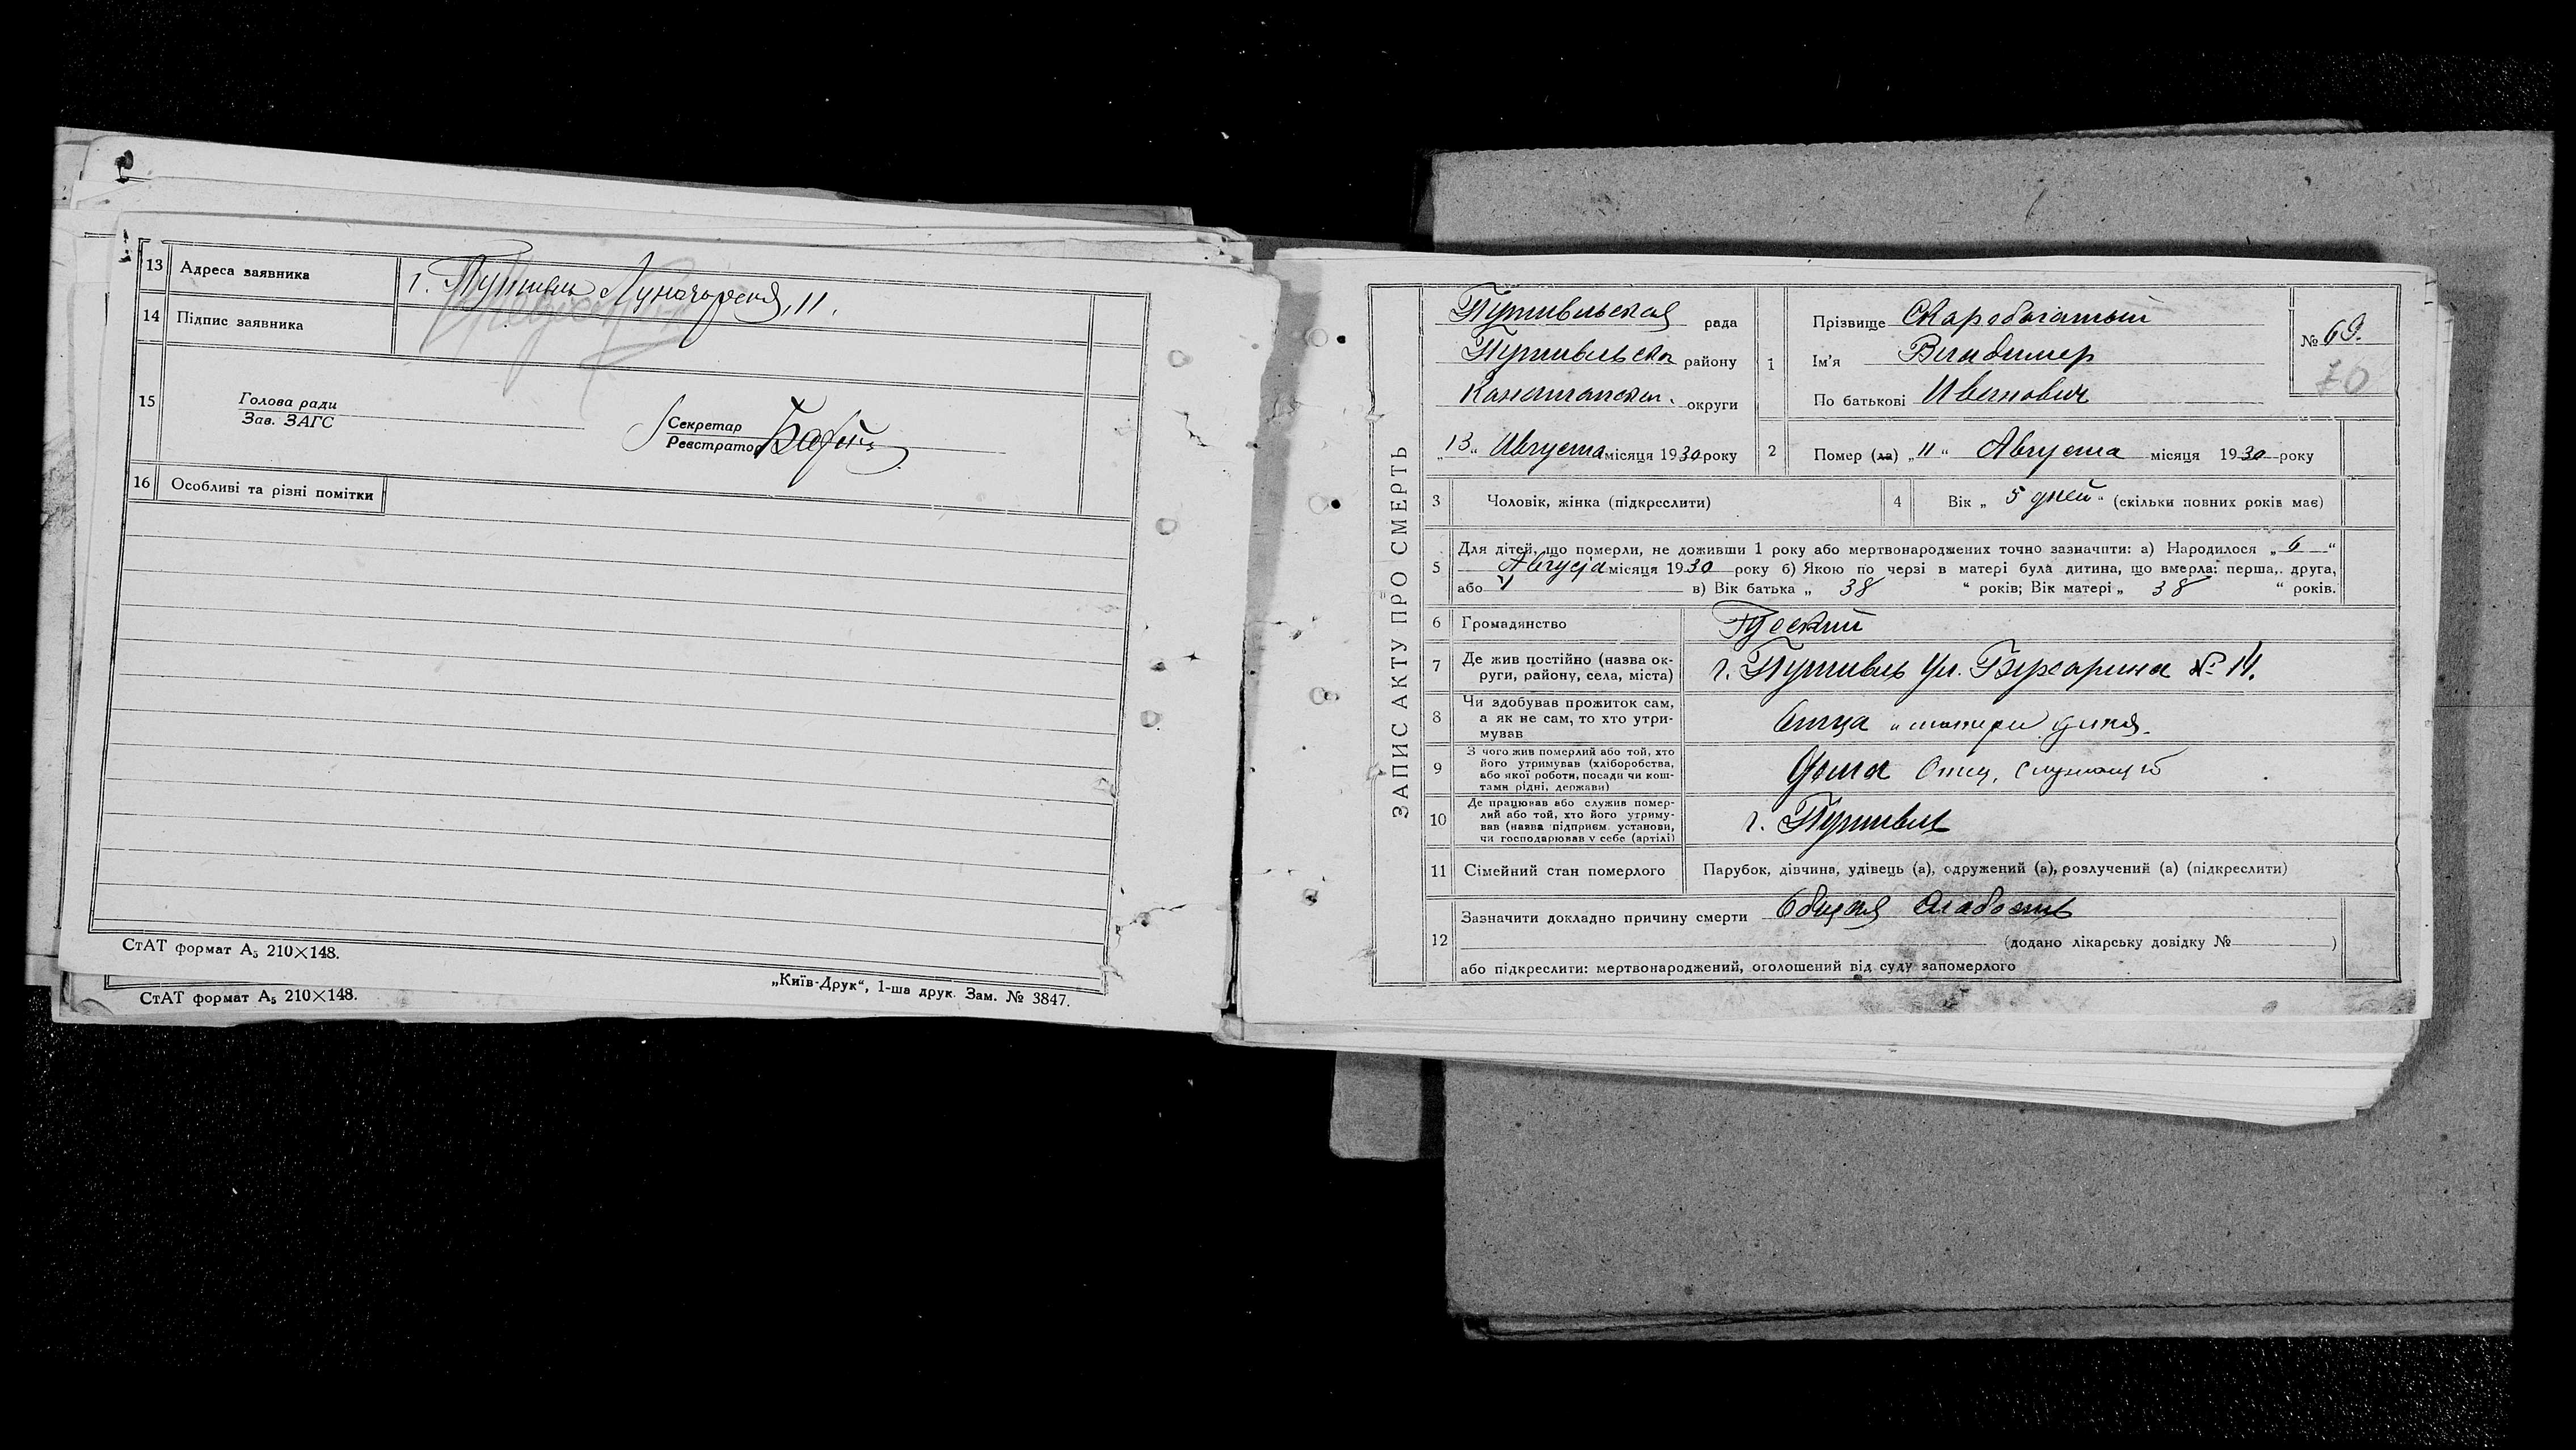 13 Адреса заявника г. Путивль Луначарская, 11.
14 Підпис заявника
15 Голова ради
Зав. ЗАГС
Секретар
Реєстратор
16 Особливі та різні помітки
СтАТ формат А₅ 210×148.
„Київ-Друк“, 1-ша друк. Зам. № 3847.
СтАТ формат А₅ 210×148.
ЗАПИС АКТУ ПРО СМЕРТЬ
Путивльская рада
Путивльска району
округи
„13“ Августа місяця 1930 року
1 Прізвище Скаробагатый
Ім'я Владимер
По батькові Иванович
№ 69.
70
2 Помер (ла) „11“ Августа місяця 1930 року
3 Чоловік, жінка (підкреслити)
4 Вік „5 дней“ (скільки повних років має)
5 Для дітей, що померли, не доживши 1 року або мертвонароджених точно зазначити: а) Народилося „6“
Августа місяця 1930 року б) Якою по черзі в матері була дитина, що вмерла: перша, друга,
або в) Вік батька „38“ років; Вік матері „38“ років.
6 Громадянство Руский
7 Де жив постійно (назва ок-
руги, району, села, міста) г. Путивль ул. Бухарина № 14.
8 Чи здобував прожиток сам,
а як не сам, то хто утри-
мував
Отца и матери
9 З чого жив померлий або той, хто
його утримував (хліборобства,
або якої роботи, посади чи кош-
тами рідні, держави)
Отец, служащий
10 Де працював або служив помер-
лий або той, хто його утриму-
вав (назва підприєм. установи,
чи господарював у себе (артілі)
г. Путивль
11 Сімейний стан померлого Парубок, дівчина, удівець (а), одружений (а), розлучений (а) (підкреслити)
12 Зазначити докладно причину смерти Общая слабость
(додано лікарську довідку № )
або підкреслити: мертвонароджений, оголошений від суду запомерлого